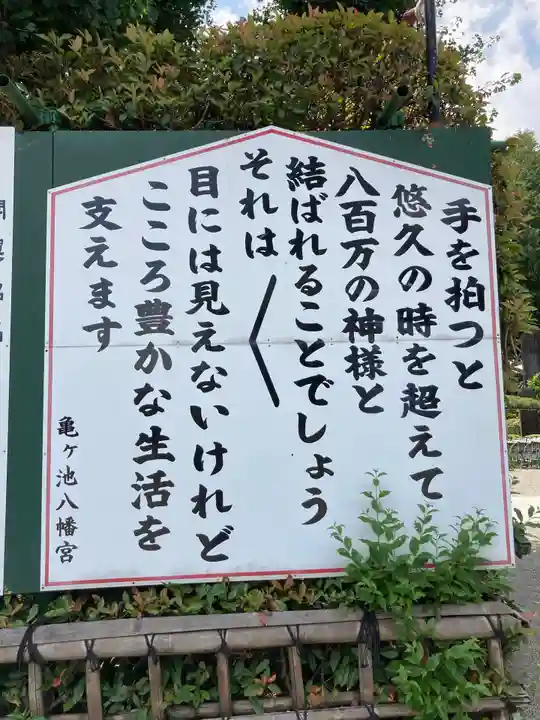 手を拍つと
悠久の時を超えて
八百万の神様と
結ばれることでしょう
それは
目には見えないけれど
こころ豊かな生活を
支えます
亀ヶ池八幡宮